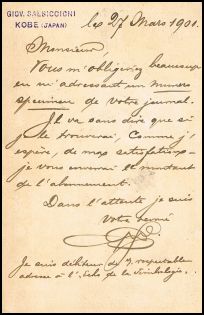 GIOV. SALSICCIONI
KOBE (JAPAN)
les 27 Mars 1901.
Monsieur
Vous m'obligeriez beaucoup
en m'adressant un numero
specimen de votre journal.
Il va sans dire que si
je le trouverai, comme j'
espère, de mas satisfations
je vous enverrai le montant
de l'abonnement.
Dans l'attente je suis
Votre
Je suis débiteur de respectable
adresse à l'